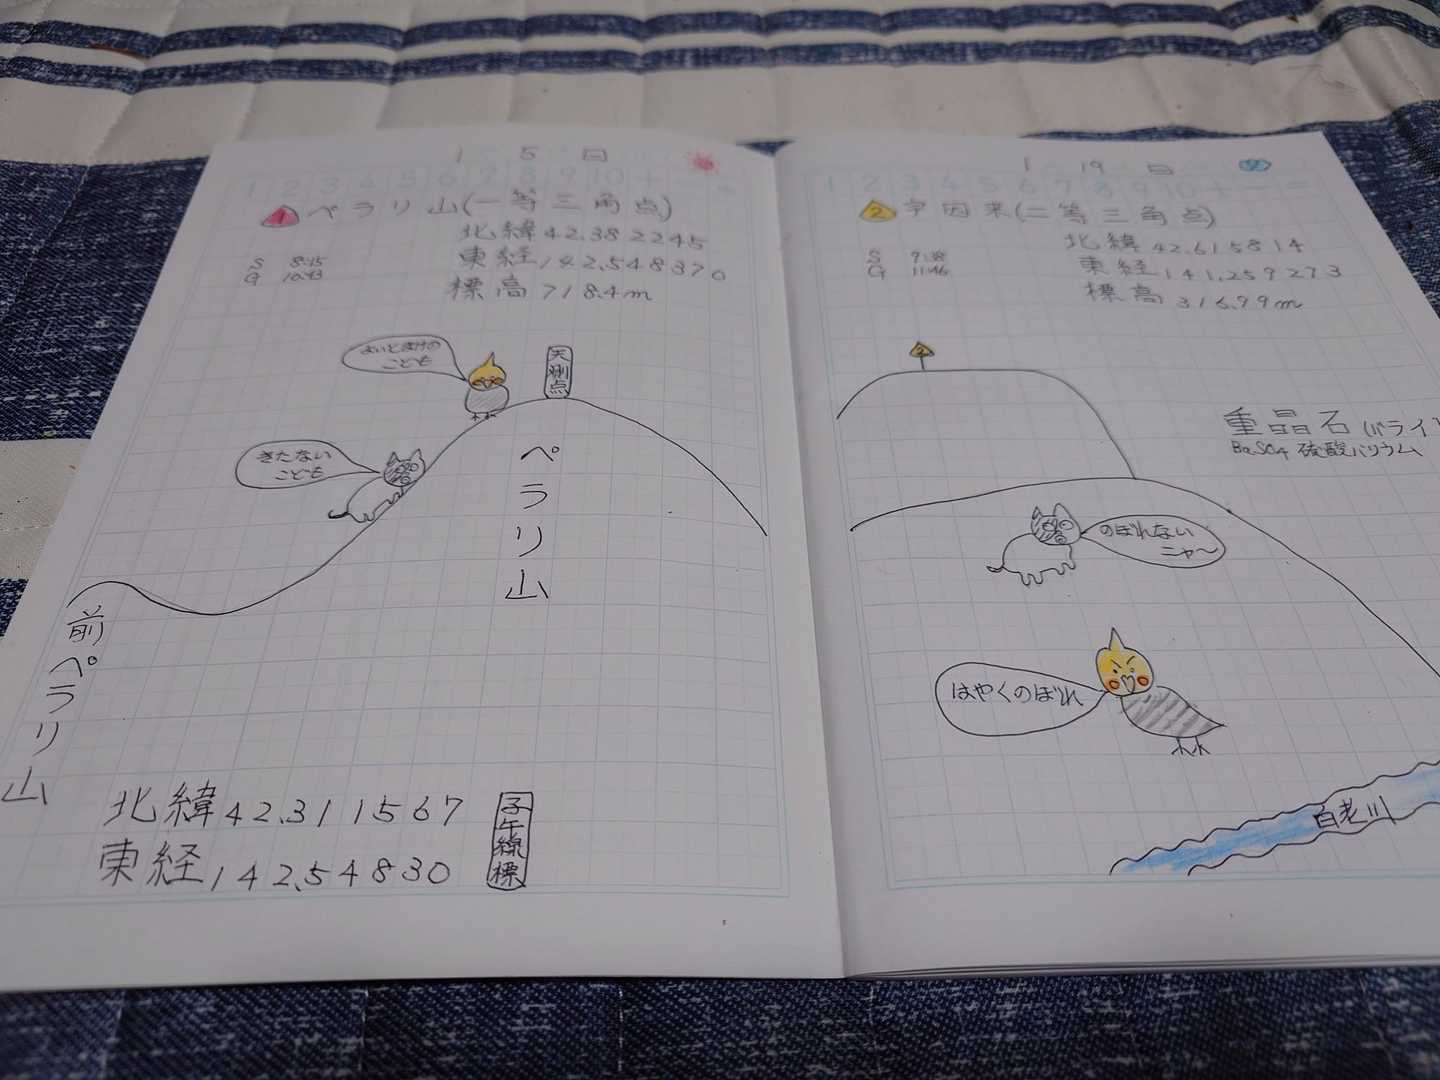 1 5 日
1 2 3 4 5 6 7 8 9 10 + − =
1 ペラリ山(一等三角点)
北緯42.382245
東経142.548370
標高718.4m
S 8:15
G 10:43
よいとまけの
こども
天測点
きたない
こども
ペラリ山
前ペラリ山
北緯42.311567
東経142.54830
子午線標
1 19 日
1 2 3 4 5 6 7 8 9 10 + − =
2 宇因来(二等三角点)
北緯42.615814
東経141.259273
標高316.99m
S 9:38
G 11:46
2
重晶石(バライ
BaSO4 硫酸バリウム
のぼれない
ニャ〜
はやくのぼれ
白老川